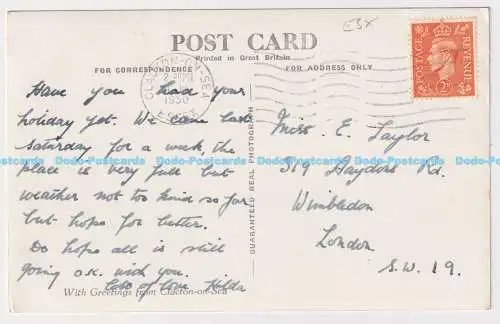 E3x
POST CARD
Printed in Great Britain
FOR CORRESPONDENCE
FOR ADDRESS ONLY
CLACTON-ON-SEA
1950
ESSEX
POSTAGE
REVENUE
2D
GUARANTEED REAL PHOTOGRAPH
Have you had your
holiday yet. We came last
Saturday for a week, the
place is very full but
weather not too kind so far
but hope for better.
Do hope all is still
going O.K. with you.
Lots of love Hilda
With Greetings from Clacton-on-Sea
Miss. E. Taylor
319 Haydons Rd.
Wimbledon
London
S.W. 19.
Dodo-Postcards Dodo-Postcards Dodo-Postcards Dodo-Postcards Dodo-Postcards